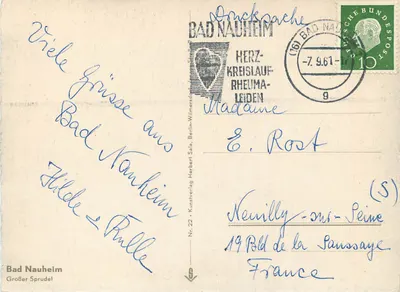 Drucksache
BAD NAUHEIM
HERZ-
KREISLAUF-
RHEUMA-
LEIDEN
(16) BAD NAUHEIM
-7. 9.61.
g
DEUTSCHE BUNDESPOST
10
Viele Grüsse aus
Bad Nauheim
Hilde &
Madame
E. Rost
(S)
Neuilly-sur-Seine
19 Bld de la Saussaye
France
Bad Nauheim
Großer Sprudel
Nr. 22 - Kunstverlag Herbert Sala, Berlin-Wilmersdorf